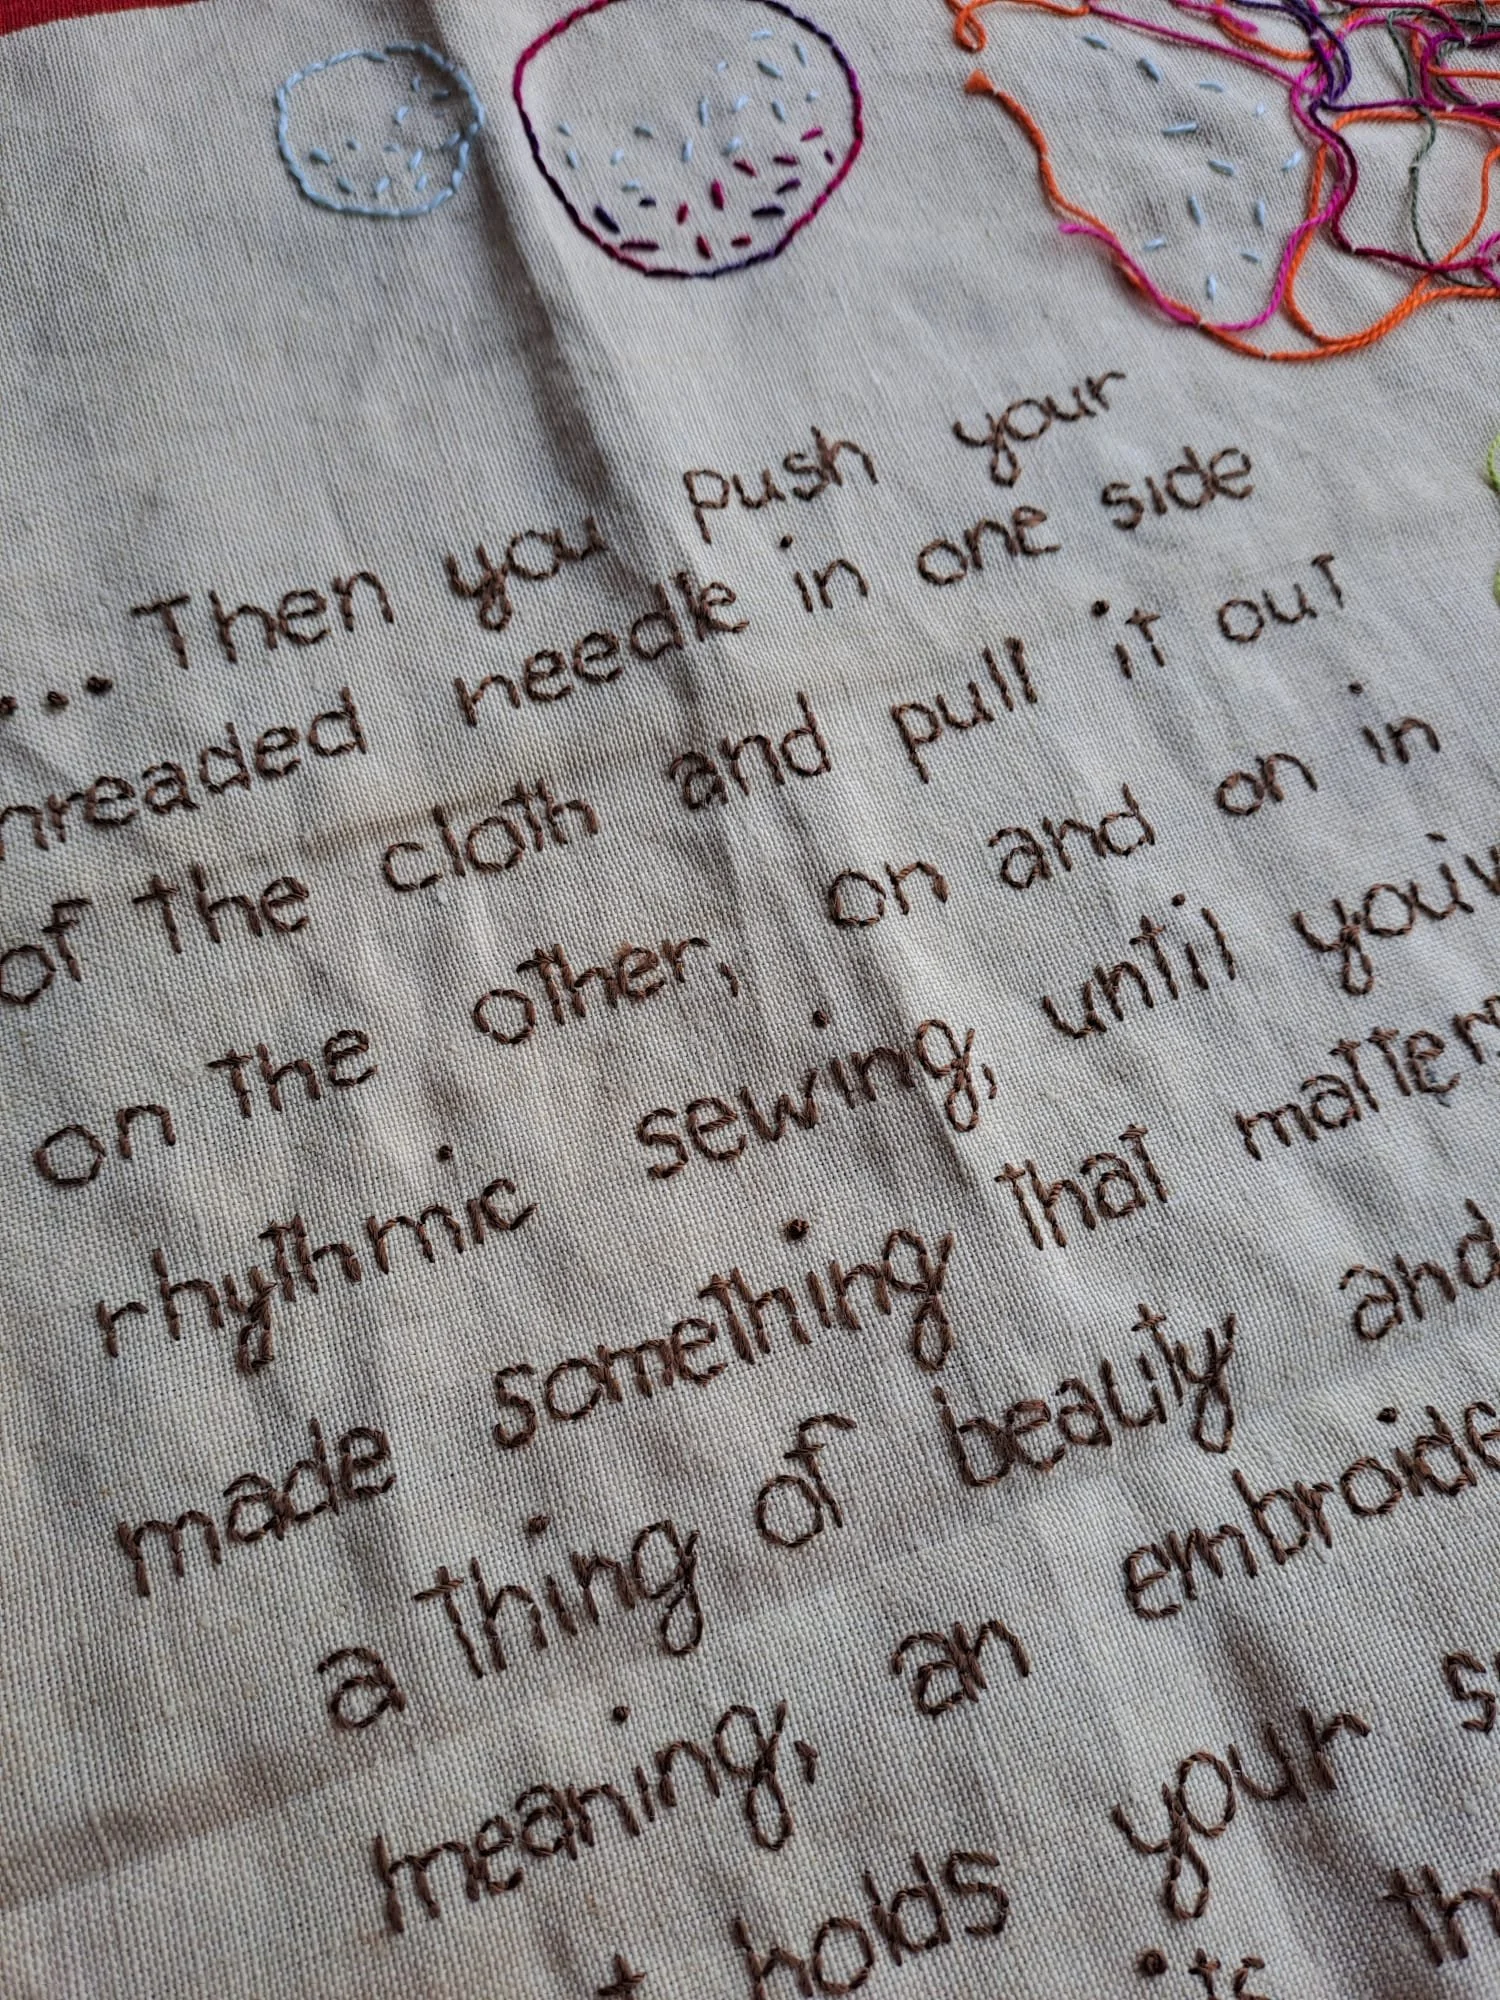 ... Then you push your
hreaded needle in one side
of the cloth and pull it out
on the other, on and on in
rhythmic sewing, until you'v
made something that matters
a thing of beauty and
meaning, an embroide
holds your
its th